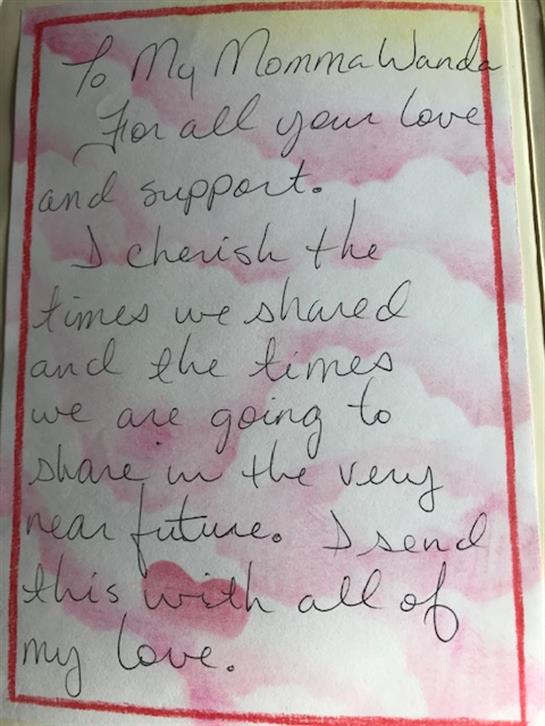 To My Momma Wanda
For all your love
and support.
I cherish the
times we shared
and the times
we are going to
share in the very
near future. I send
this with all of
my love.